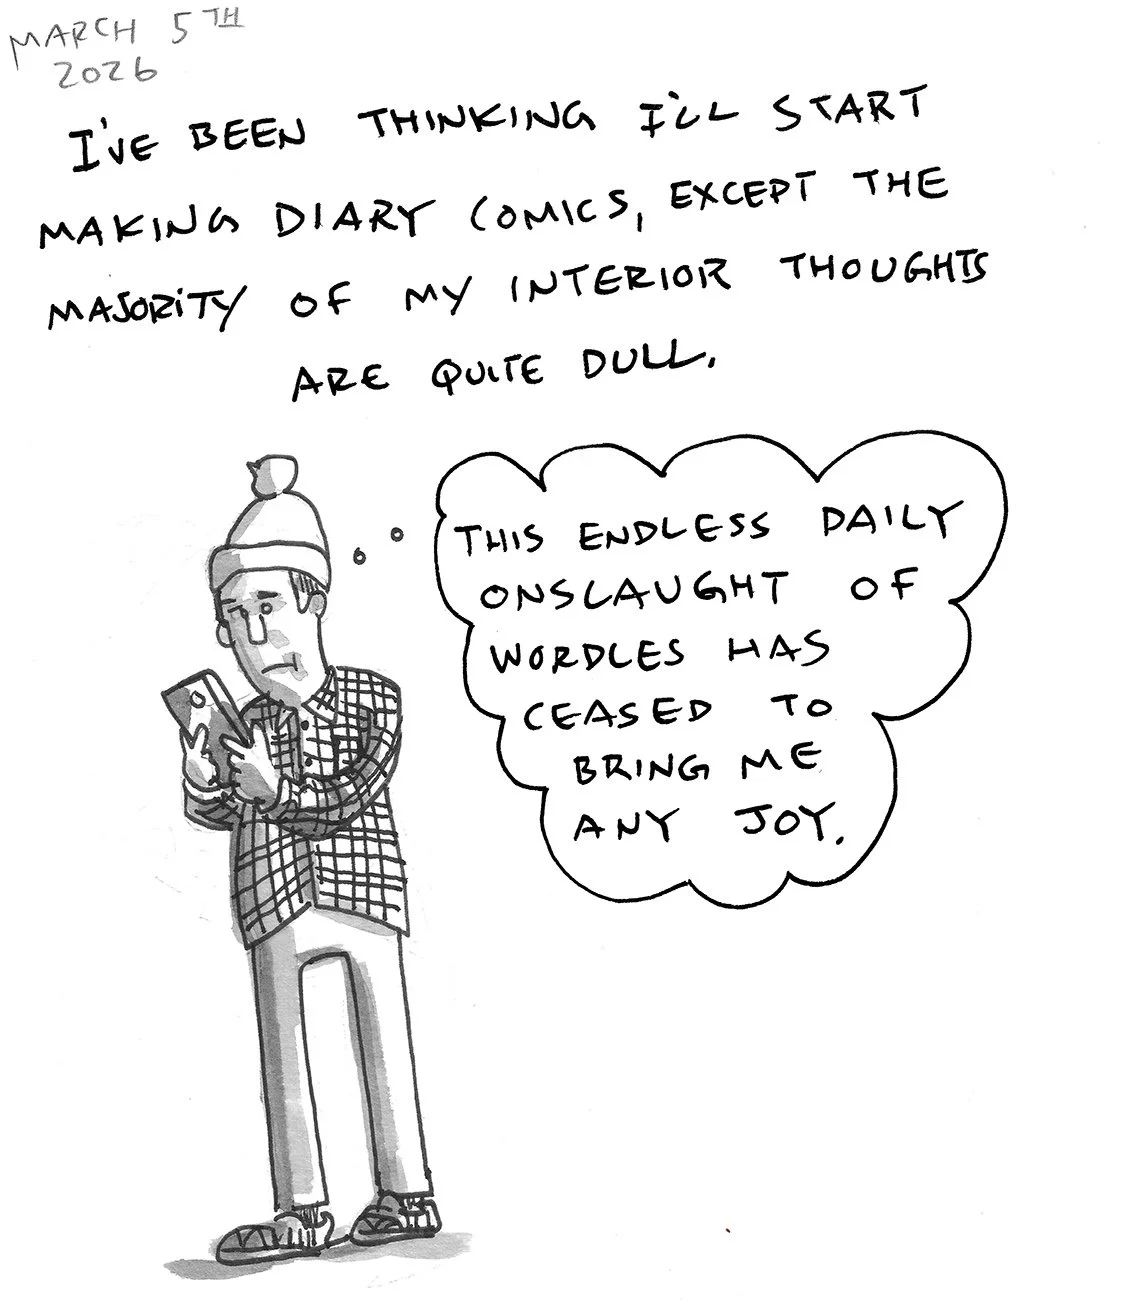 MARCH 5TH
2026
I'VE BEEN THINKING I'LL START
MAKING DIARY COMICS, EXCEPT THE
MAJORITY OF MY INTERIOR THOUGHTS
ARE QUITE DULL.
THIS ENDLESS DAILY
ONSLAUGHT OF
WORDLES HAS
CEASED TO
BRING ME
ANY JOY.